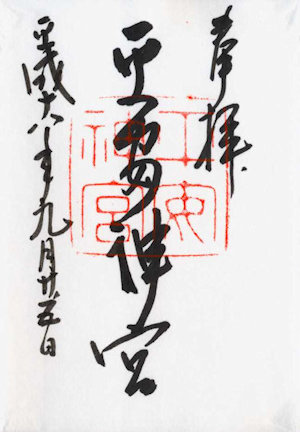 奉拝
平安神宮
平成十八年九月廿五日
平安神宮